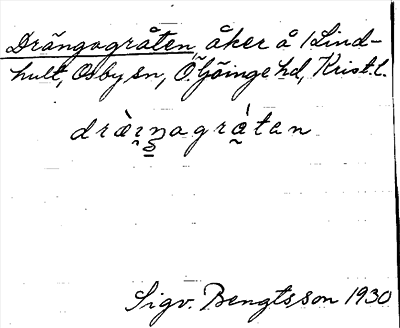 Drängagråten, åker å 1 Lind-
hult, Osby sn, Ö. Göinge hd, Krist. l.
Sigv. Bengtsson 1930